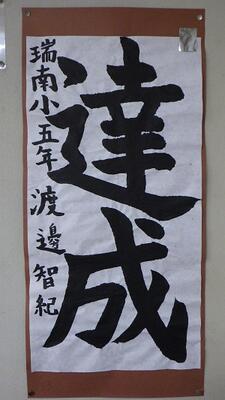 達成
瑞南小五年 渡邊智紀